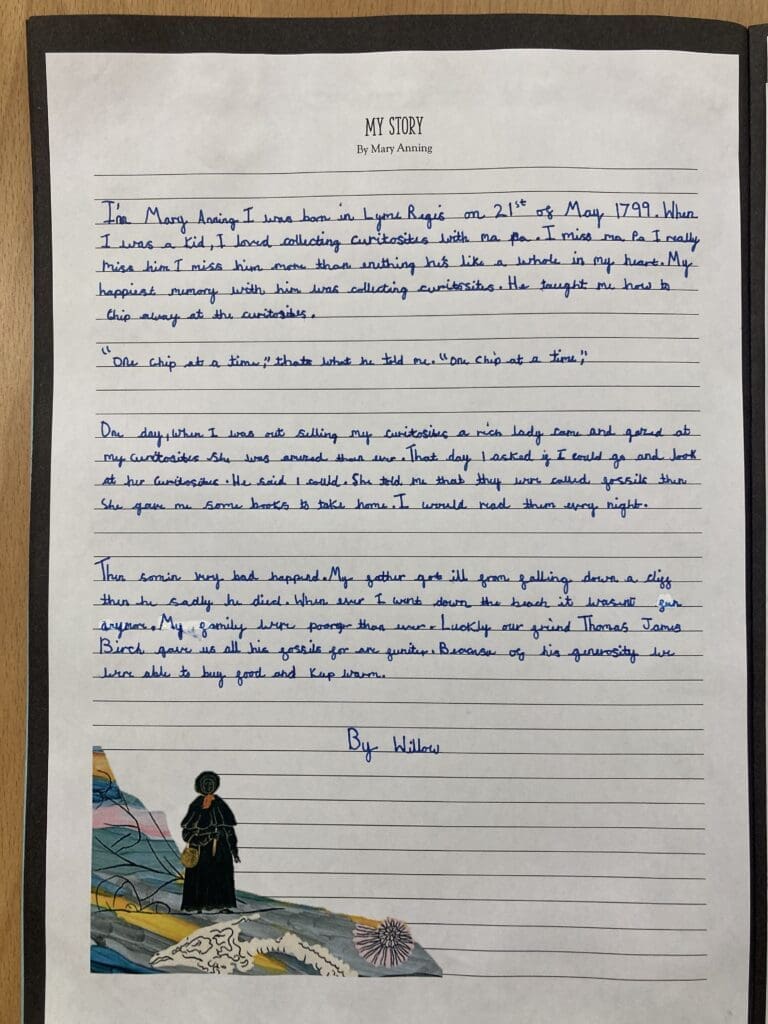 MY STORY
By Mary Anning
I'm Mary Anning I was born in Lyme Regis on 21st of May 1799. When
I was a kid, I loved collecting curitosites with ma pa. I miss ma Pa I really
miss him I miss him more than enithing he's like a whole in my heart. My
happiest memory with him was collecting curitosites. He taught me how to
chip away at the curitosites.
"One chip at a time," thats what he told me. "One chip at a time,"
One day, when I was out selling my curitosites a rich lady came and gazed at
my curitosites she was amused than ever. That day I asked if I could go and look
at her curitosites. He said I could. She told me that they were called fossils then
She gave me some books to take home. I would read them every night.
Then somin very bad happend. My father got ill from falling down a cliff
then he sadly he died. When ever I went down the beach it wasent fun
anymore. My family were poorer than ever. Luckly our friend Thomas James
Birch gave us all his fossils for are funiter. Because of his generosity we
were able to buy food and keep warm.
By Willow